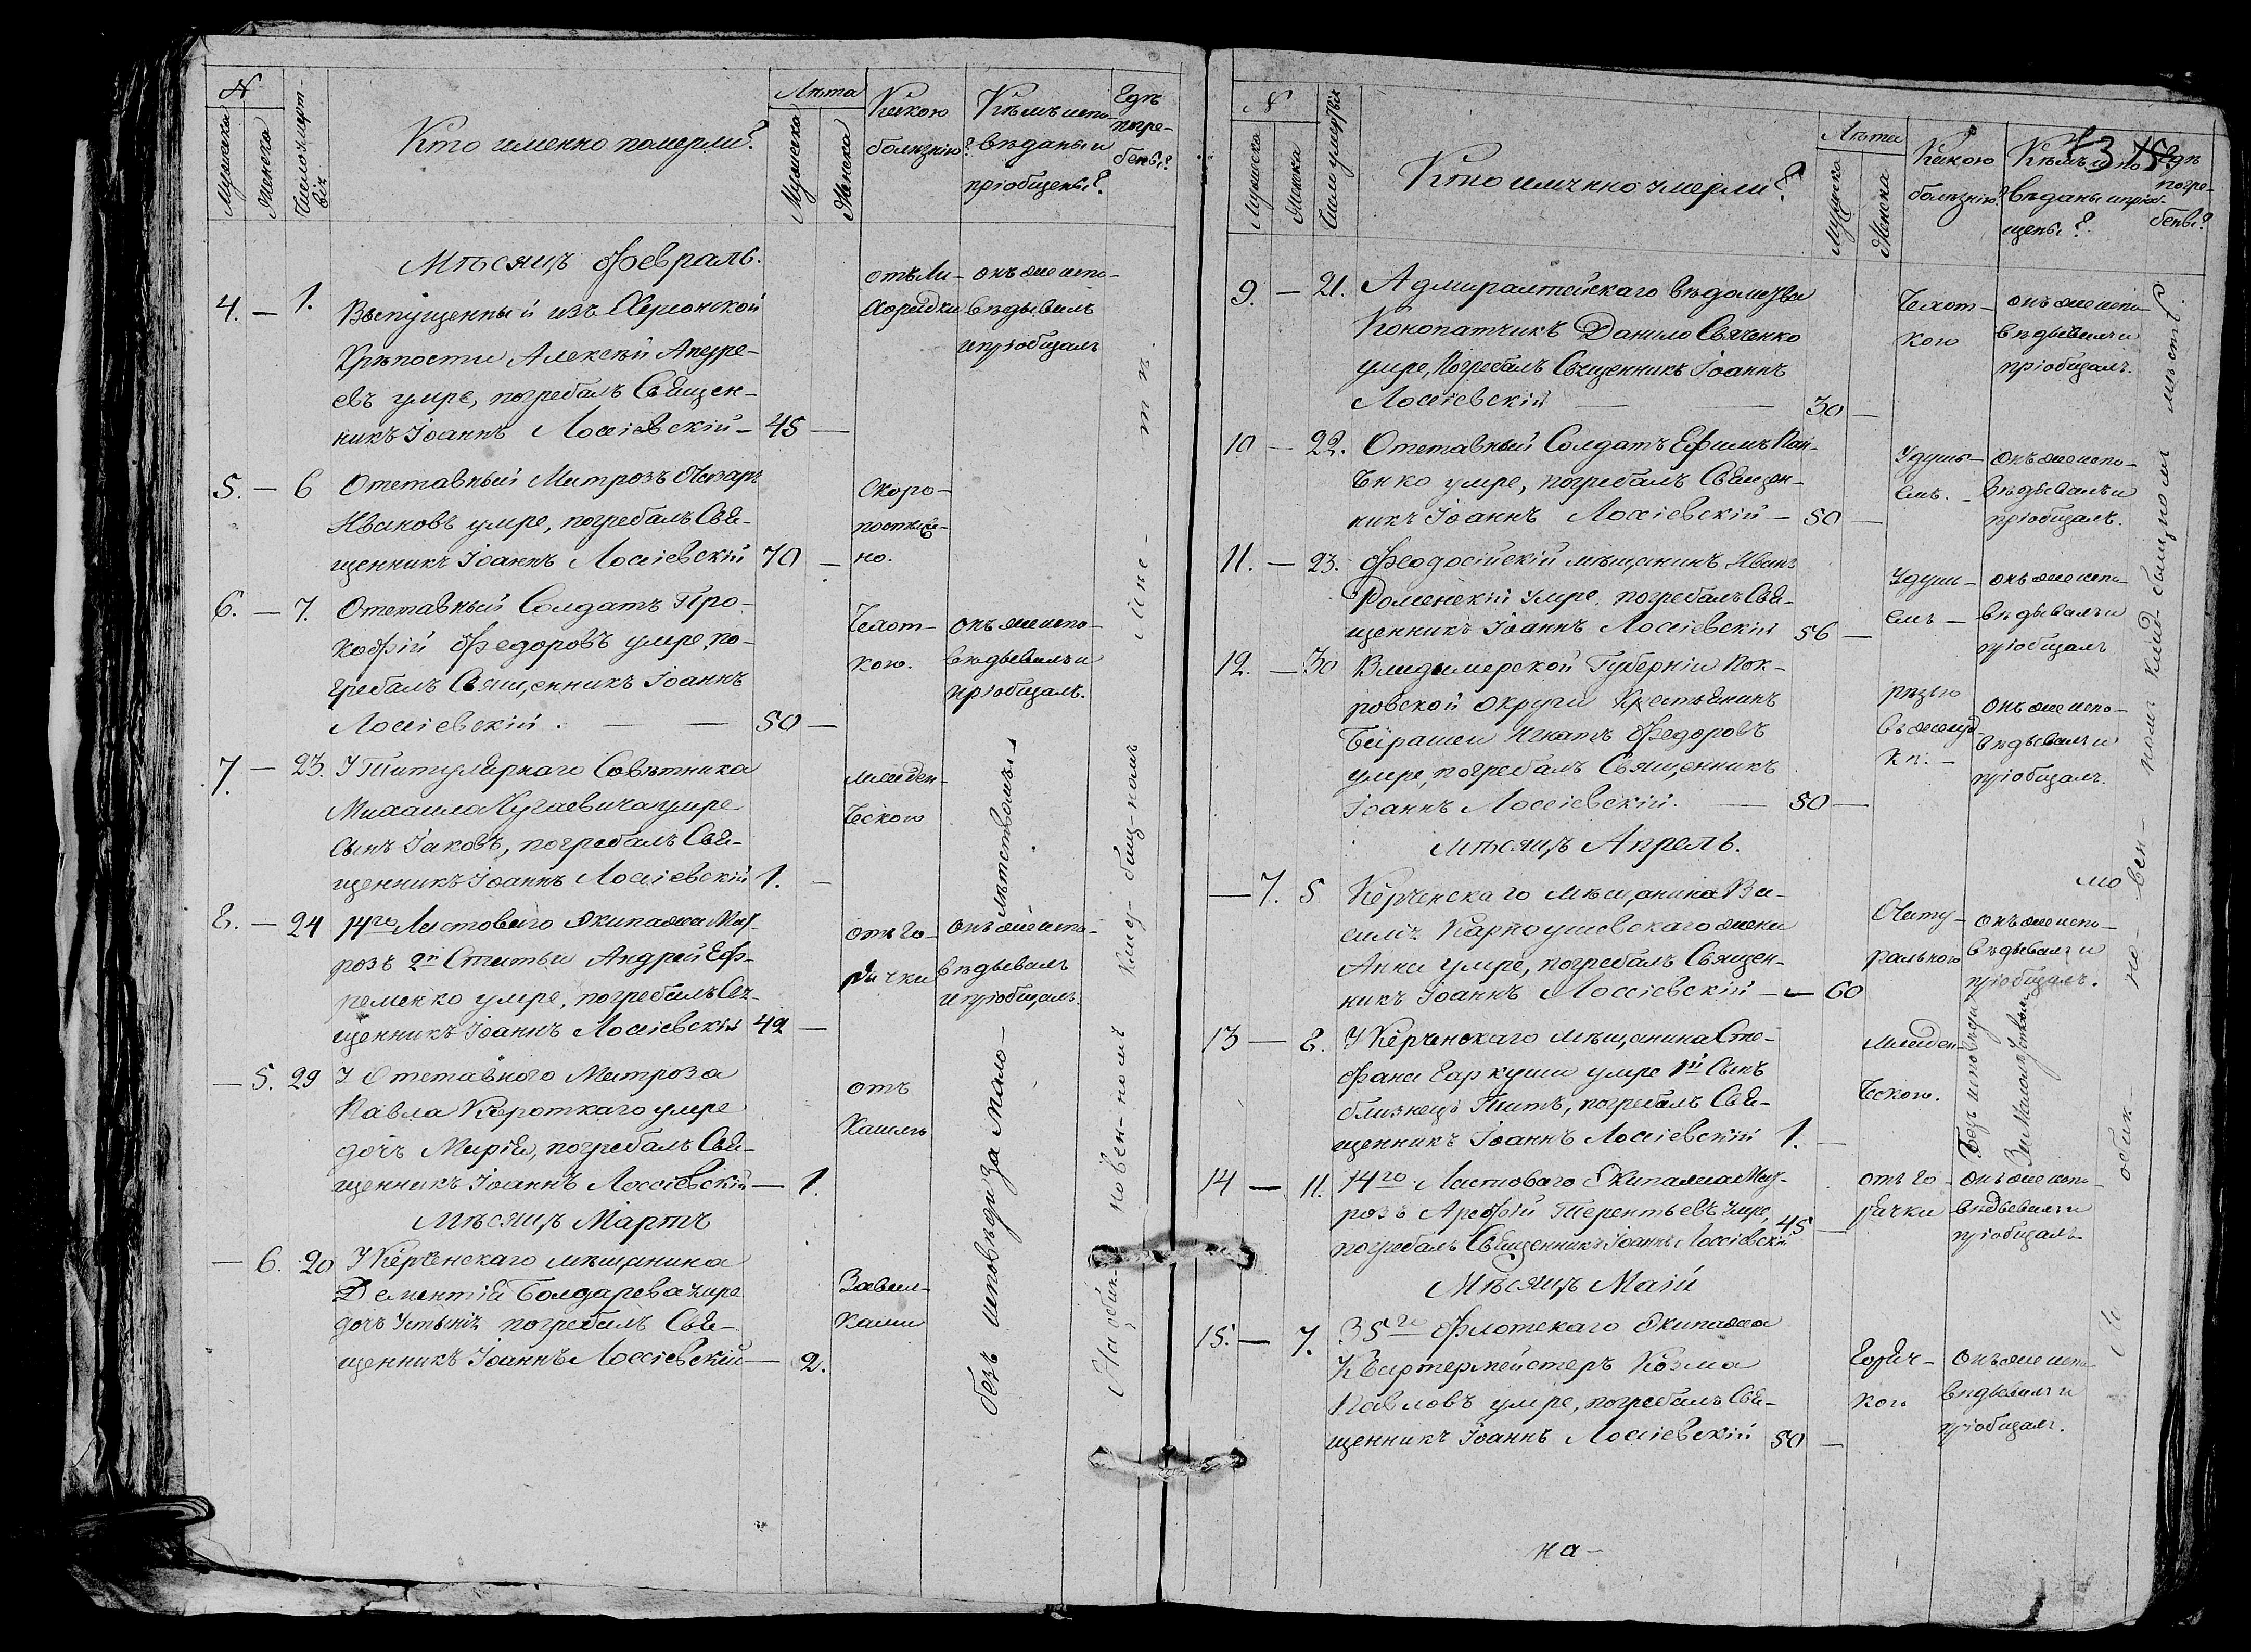 N
Мужеска
Женска
Число смерт-
вія
Кто именно померли?
Лѣта
Мужеска
Женска
Какою
болѣзнію?
Кѣмъ испо-
вѣданы и
пріобщены?
Гдѣ
погре-
бены?
Мѣсяцъ Февраль.
4. — 1. Выпущенный изъ Херсонской
Крѣпости Алексѣй Андре-
евъ умре, погребалъ Священ-
никъ Іоаннъ Лоссіевскій — 45 —
отъ Ли-
хорадки
онъ же испо-
вѣдывалъ
и пріобщалъ
5. — 6 Отставный Матрозъ
Ивановъ умре, погребалъ Свя-
щенникъ Іоаннъ Лоссіевскій 70 —
Скоро-
постиж-
но.
6. — 7. Отставный Солдатъ Про-
кофій Федоровъ умре, по-
гребалъ Священникъ Іоаннъ
Лоссіевскій. — — 50 —
Чехот-
кою.
онъ же испо-
вѣдывалъ и
пріобщалъ.
7. — 23. У Титулярнаго Совѣтника
Михаила Кугаевича умре
сынъ Іаковъ, погребалъ Свя-
щенникъ Іоаннъ Лоссіевскій 1. —
младен-
ческою
8. — 24 14го Ластоваго Экипажа Мат-
розъ 2й Статьи Андрей Еф-
ременко умре, погребалъ Свя-
щенникъ Іоаннъ Лоссіевскій 42 —
отъ го-
рячки
онъ же испо-
вѣдывалъ
и пріобщалъ.
— 5. 29 У Отставного Матроза
Павла Короткаго умре
дочь Марія, погребалъ Свя-
щенникъ Іоаннъ Лоссіевскій — 1.
отъ
Кашля
Мѣсяцъ Мартъ
— 6. 20 У Керченскаго мѣщанина
Дементія Болдарева умре
дочь Устинія погребалъ Свя-
щенникъ Іоаннъ Лоссіевскій — 2.
безъ исповѣди за Мало-
лѣтствомъ
На обык-
новен-номъ
клад-бищ-номъ
мѣс-тѣ.
N
Мужеска
Женска
Число умертвія
Кто именно умерли?
Лѣта
Мужеска
Женска
Какою
болѣзнію?
Кѣмъ испо-
вѣданы и пріоб-
щены?
Гдѣ
погре-
бены?
9. — 21. Адмиралтейскаго вѣдомства
Конопатчикъ Данило Свяченко
умре, Погребалъ Священникъ Іоаннъ
Лоссіевскій — — 30 —
Чехот-
кою
онъ же испо-
вѣдывалъ и
пріобщалъ.
10 — 22. Отставный Солдатъ Ефимъ
умре, погребалъ Священ-
никъ Іоаннъ Лоссіевскій — 50 —
Удушь-
емъ. —
онъ же испо-
вѣдывалъ и
пріобщалъ.
11. — 23. Феодосійскій мѣщанинъ Иванъ
Роменскій умре, погребалъ Свя-
щенникъ Іоаннъ Лоссіевскій 56 —
Удушь-
емъ —
онъ же испо-
вѣдывалъ и
пріобщалъ
12. — 30 Владимерской Губерніи Пок-
ровской округи Крестьянинъ
Игнатъ Федоровъ
умре, погребалъ Священникъ
Іоаннъ Лоссіевскій. — 50 —
рѣзью
въ желуд-
кѣ. —
онъ же испо-
вѣдывалъ и
пріобщалъ.
Мѣсяцъ Апрель.
— 7. 5 Керченскаго мѣщанина Ва-
силія Карпоушевскаго жена
Анна умре, погребалъ Священ-
никъ Іоаннъ Лоссіевскій — — 60
Онъ же испо-
вѣдывалъ и
пріобщалъ.
13 — 8. У Керченскаго мѣщанина Сте-
фана Гаркуши умре 1й Сынъ
близнецъ Титъ, погребалъ Свя-
щенникъ Іоаннъ Лоссіевскій 1. —
Младен-
ческою.
Безъ исповѣди
За Малолѣтствомъ
14 — 11. 14го Ластоваго Экипажа Мат-
розъ Арефій Терентьевъ умре,
погребалъ Священникъ Іоаннъ Лоссіевскій 45 —
отъ го-
рячки
Онъ же испо-
вѣдывалъ и
пріобщалъ
Мѣсяцъ Маій
15. — 7. 35го Флотскаго Экипажа
Квартермейстеръ Козма
Павловъ умре, погребалъ Свя-
щенникъ Іоаннъ Лоссіевскій 50 —
Горяч-
кою
Онъ же испо-
вѣдывалъ и
пріобщалъ.
обык-но-вен-номъ клад-бищ-номъ мѣстѣ.
на-